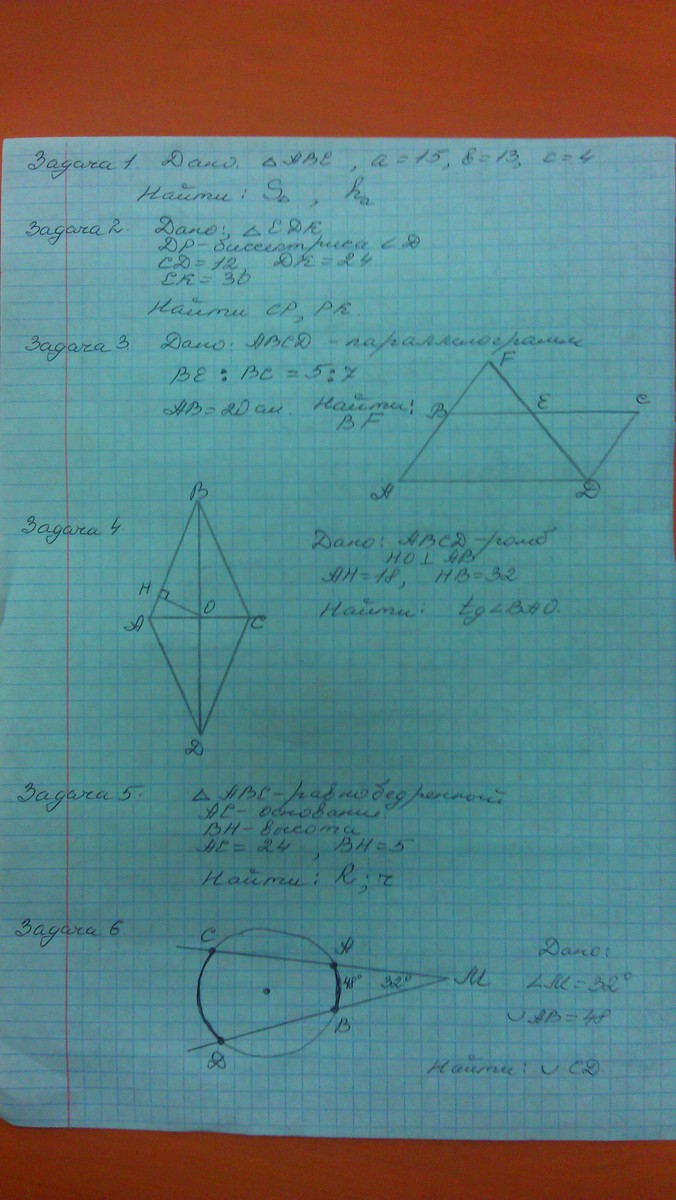 Задача 1. Дано. △ABC, a=15, b=13, c=4
Найти: S△, hₐ
Задача 2. Дано:, △CDK
DP-биссектриса ∠D
CD=12 DK=24
CK=36
Найти CP, PK.
Задача 3. Дано: ABCD - параллилограмм
BE : BC = 5:7
AB=20см. Найти:
BF
F
B
E
C
A
D
Задача 4.
B
H
O
A
C
D
Дано: ABCD-ромб
HO⊥AB
AH=18, HB=32
Найти: tg∠BAO.
Задача 5.
△ABC-равнобедренный
AC- основание
BH-высота
AC=24, BH=5
Найти: R; r
Задача 6
C
A
48°
32°
M
B
D
Дано:
∠M=32°
∪AB=48
Найти: ∪CD